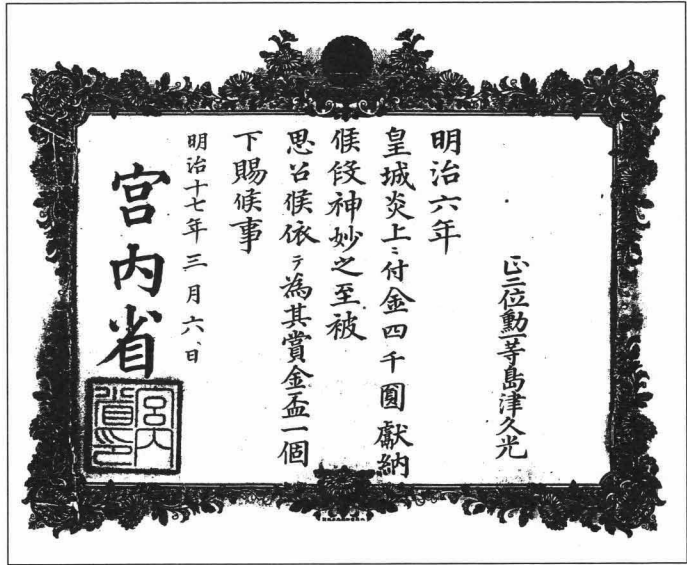 正二位勲一等島津久光
明治六年
皇城炎上ニ付金四千圓献納
候段神妙之至被
思召候依テ為其賞金盃一個
下賜候事
明治十七年三月六日
宮内省
宮内省印